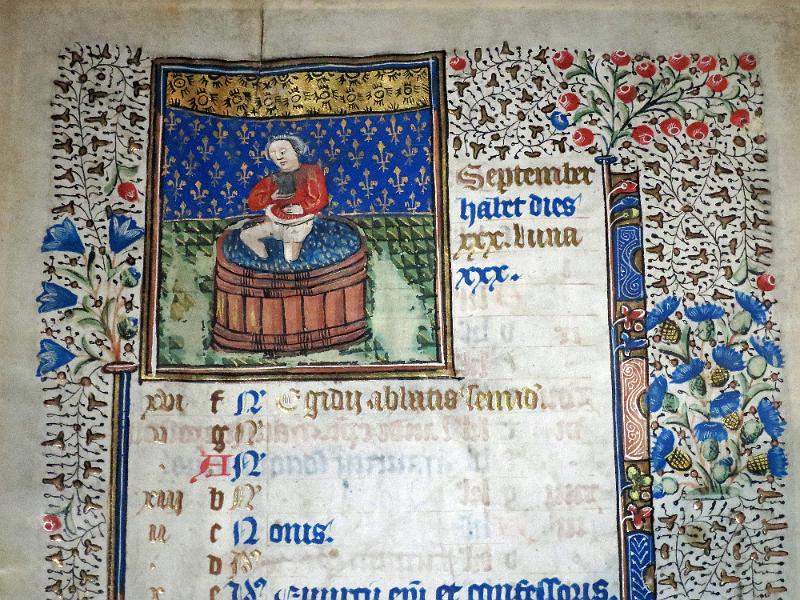 September
habet dies
xxx. luna
xxx.
xvi f N Egidij abbatis
v g N
A N
xiij b N
ii c Nonis.
d
x e et confessoris.